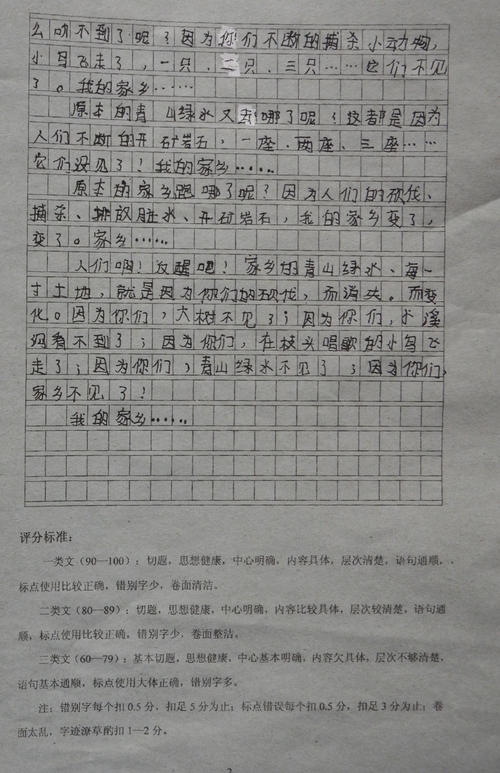 么吵不到了呢？因为你们不断的捕杀小动物，
小鸟飞走了，一只、二只、三只……它们不见
了。我的家乡……
原本的青山绿水又去哪了呢？这都是因为
人们不断的开矿岩石，一座、两座、三座……
它们没见了！我的家乡……
原本的家乡跑哪了呢？因为人们的砍伐、
捕杀、排放脏水、开矿岩石，我的家乡变了，
变了。家乡……
人们啊！友醒吧！家乡的青山绿水、每一
寸土地，就是因为你们的砍伐，而消失。而变
化。因为你们，大树不见了；因为你们，小溪
河看不到了；因为你们，在枝头唱歌的小鸟飞
走了；因为你们，青山绿水不见了；因为你们，
家乡不见了！
我的家乡……
评分标准：
一类文（90—100）：切题，思想健康，中心明确，内容具体，层次清楚，语句通顺，
标点使用比较正确，错别字少，卷面清洁。
二类文（80—89）：切题，思想健康，中心明确，内容比较具体，层次较清楚，语句通
顺，标点使用比较正确，错别字少，卷面整洁。
三类文（60—79）：基本切题，思想健康，中心基本明确，内容欠具体，层次不够清楚，
语句基本通顺，标点使用大体正确，错别字多。
注：错别字每个扣 0.5 分，扣足 5 分为止；标点错误每个扣 0.5 分，扣足 3 分为止；卷
面太乱，字迹潦草酌扣 1—2 分。
2